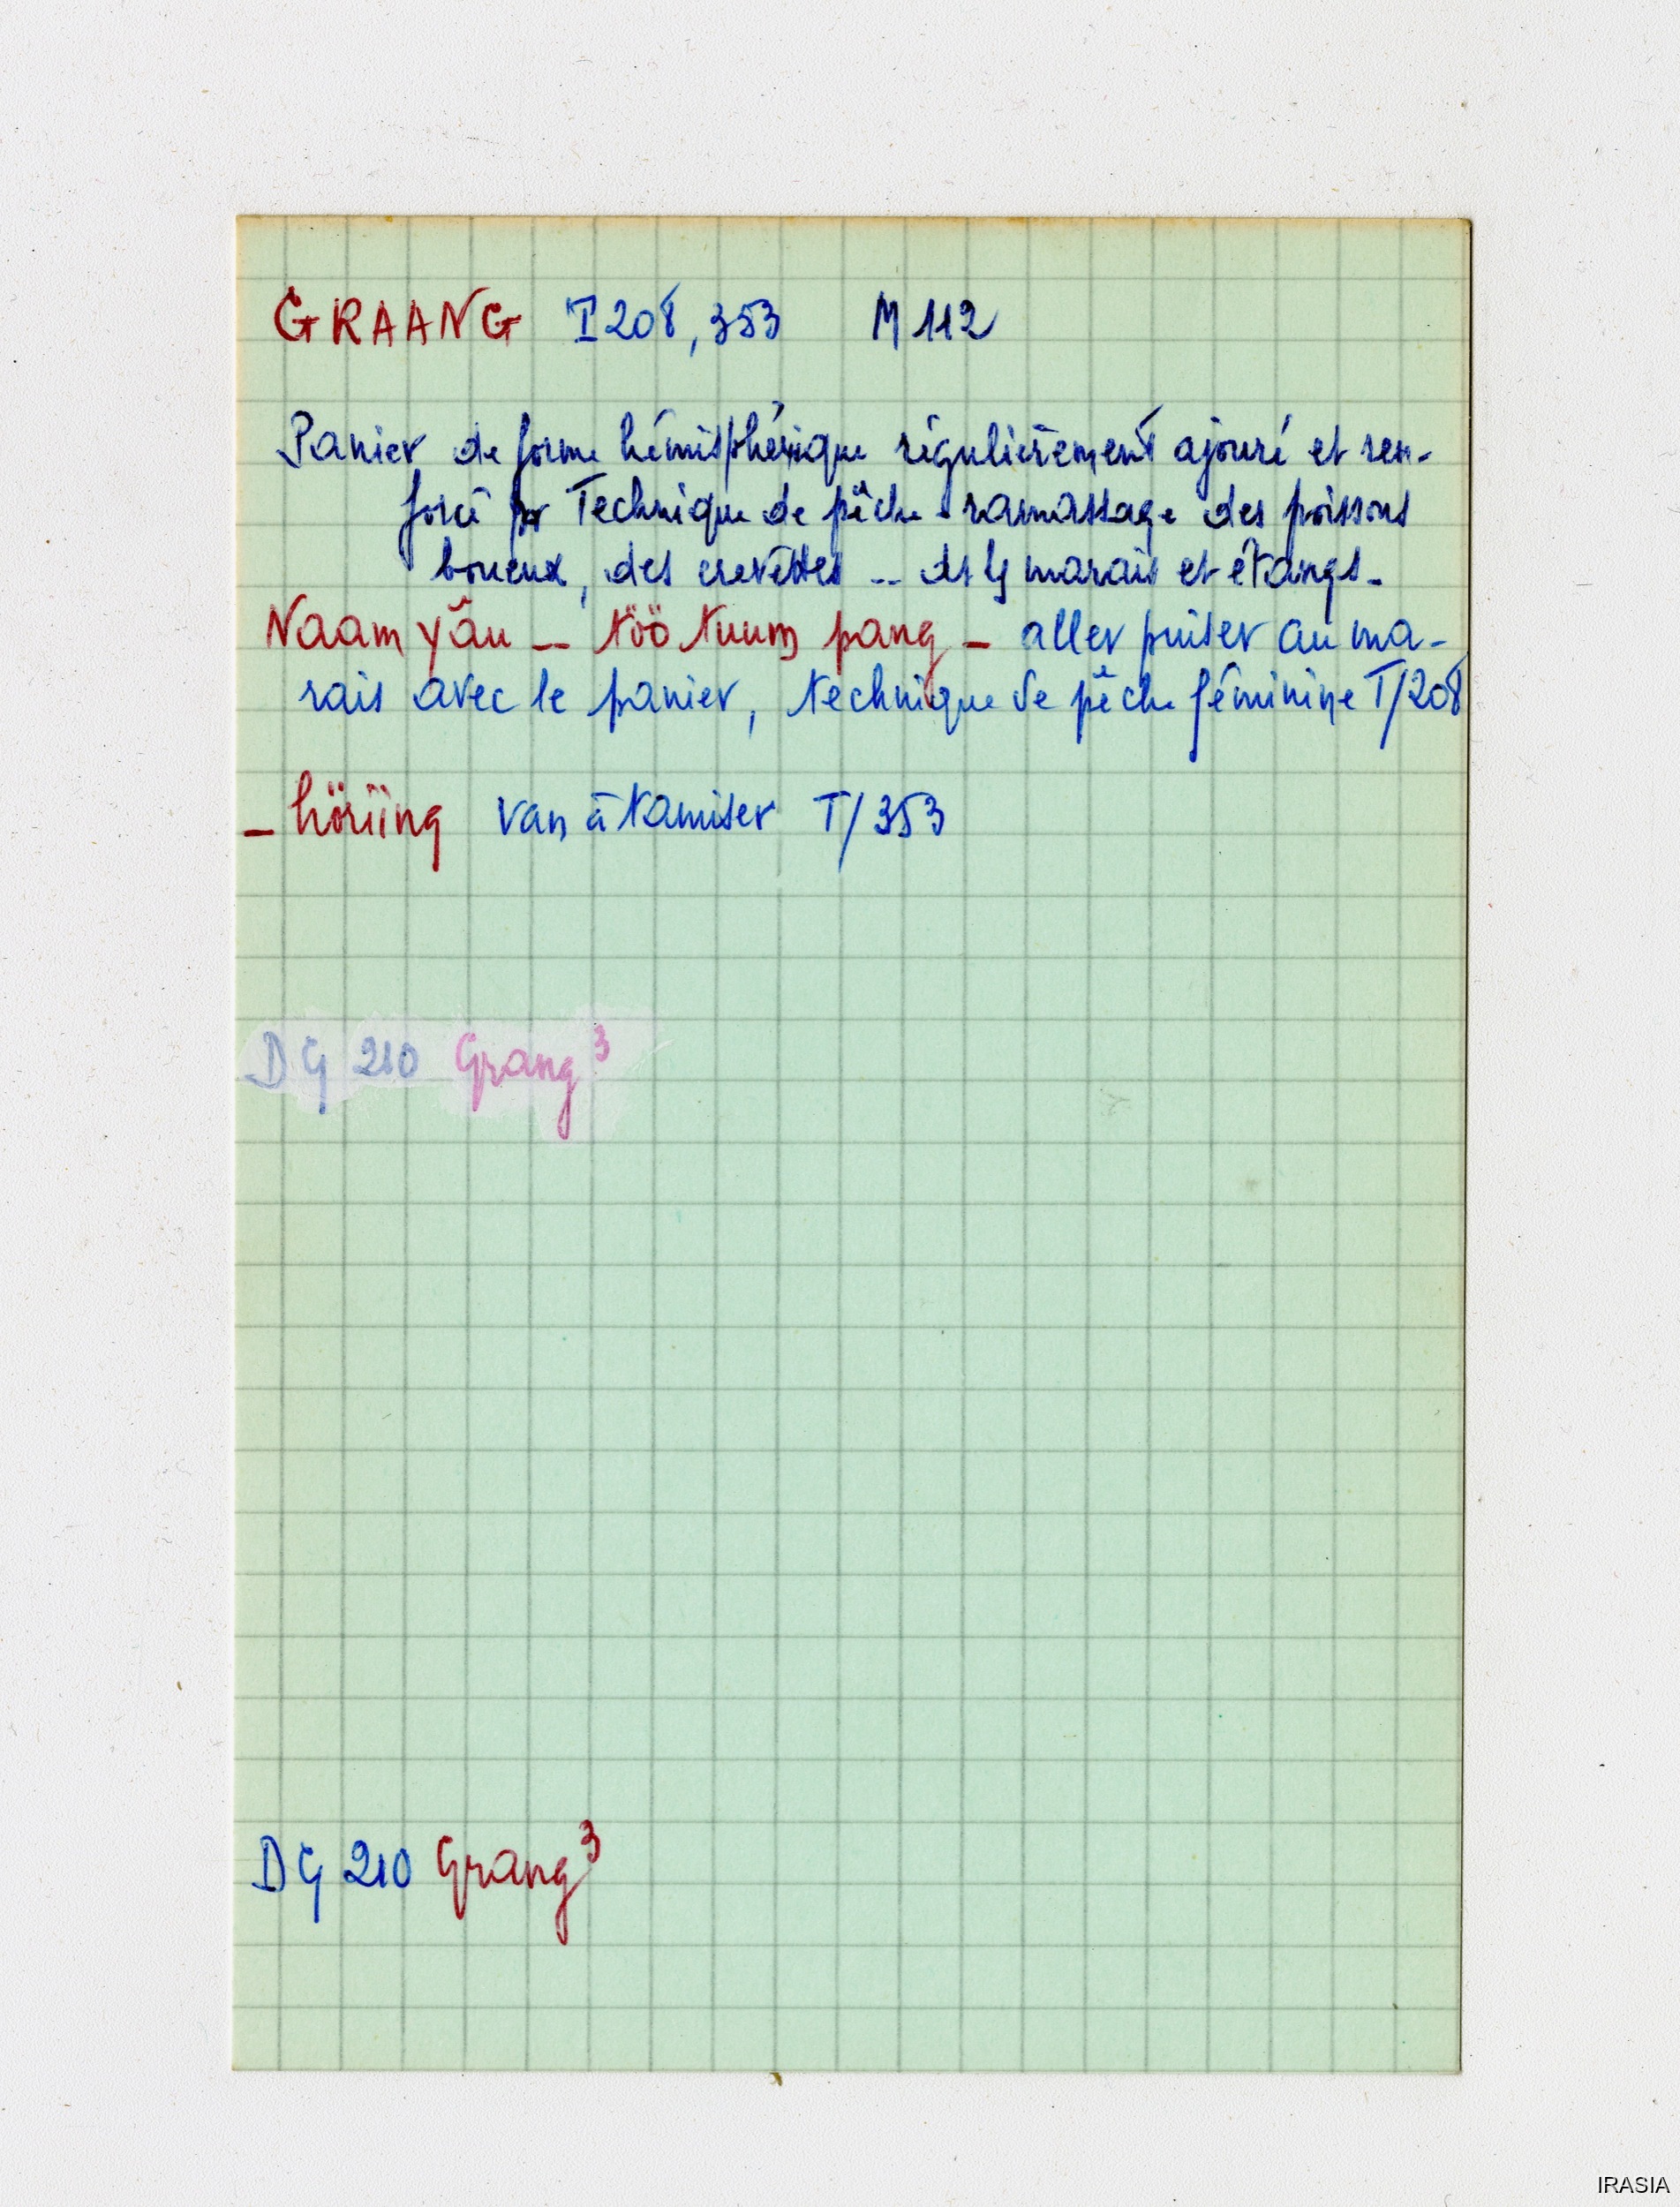 GRAANG T 208, 353 M 112
Panier de forme hémisphérique régulièrement ajouré et ren-
forcé pr Technique de pêche - ramassage des poissons
boueux, des crevettes -- ds ls marais et étangs -
Naam yâu -- töö tuum pang - aller puiser au ma-
rais avec le panier, technique de pêche féminine T/208
- höriing van à tamiser T/353
DG 210 Grang³
DG 210 Grang³
IRASIA